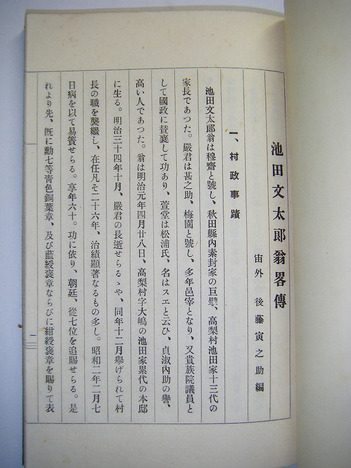 池田文太郎翁畧傳
宙外　後藤寅之助編
一、村政事蹟
池田文太郎翁は穆齋と號し、秋田縣內素封家の巨擘、高梨村池田家十三代の
家長であつた。嚴君は甚之助、梅園と號し、多年邑宰となり、又貴族院議員と
して國政に賛襄して功あり、萱堂は松浦氏、名はスエと云ひ、貞淑內助の譽、
高い人であつた。翁は明治元年四月廿八日、高梨村字大嶋の池田家累代の本邸
に生る。明治三十四年十月、嚴君の長逝せらるゝや、同年十二月擧げられて村
長の職を襲繼し、在任凡そ二十六年、治績顯著なるもの多し。昭和二年二月七
日病を以て易簀せらる。享年六十。功に依り、朝廷、從七位を追賜せらる。是
れより先、既に勳七等靑色桐葉章、及び藍綬褒章ならびに紺綬褒章を賜りて表
一